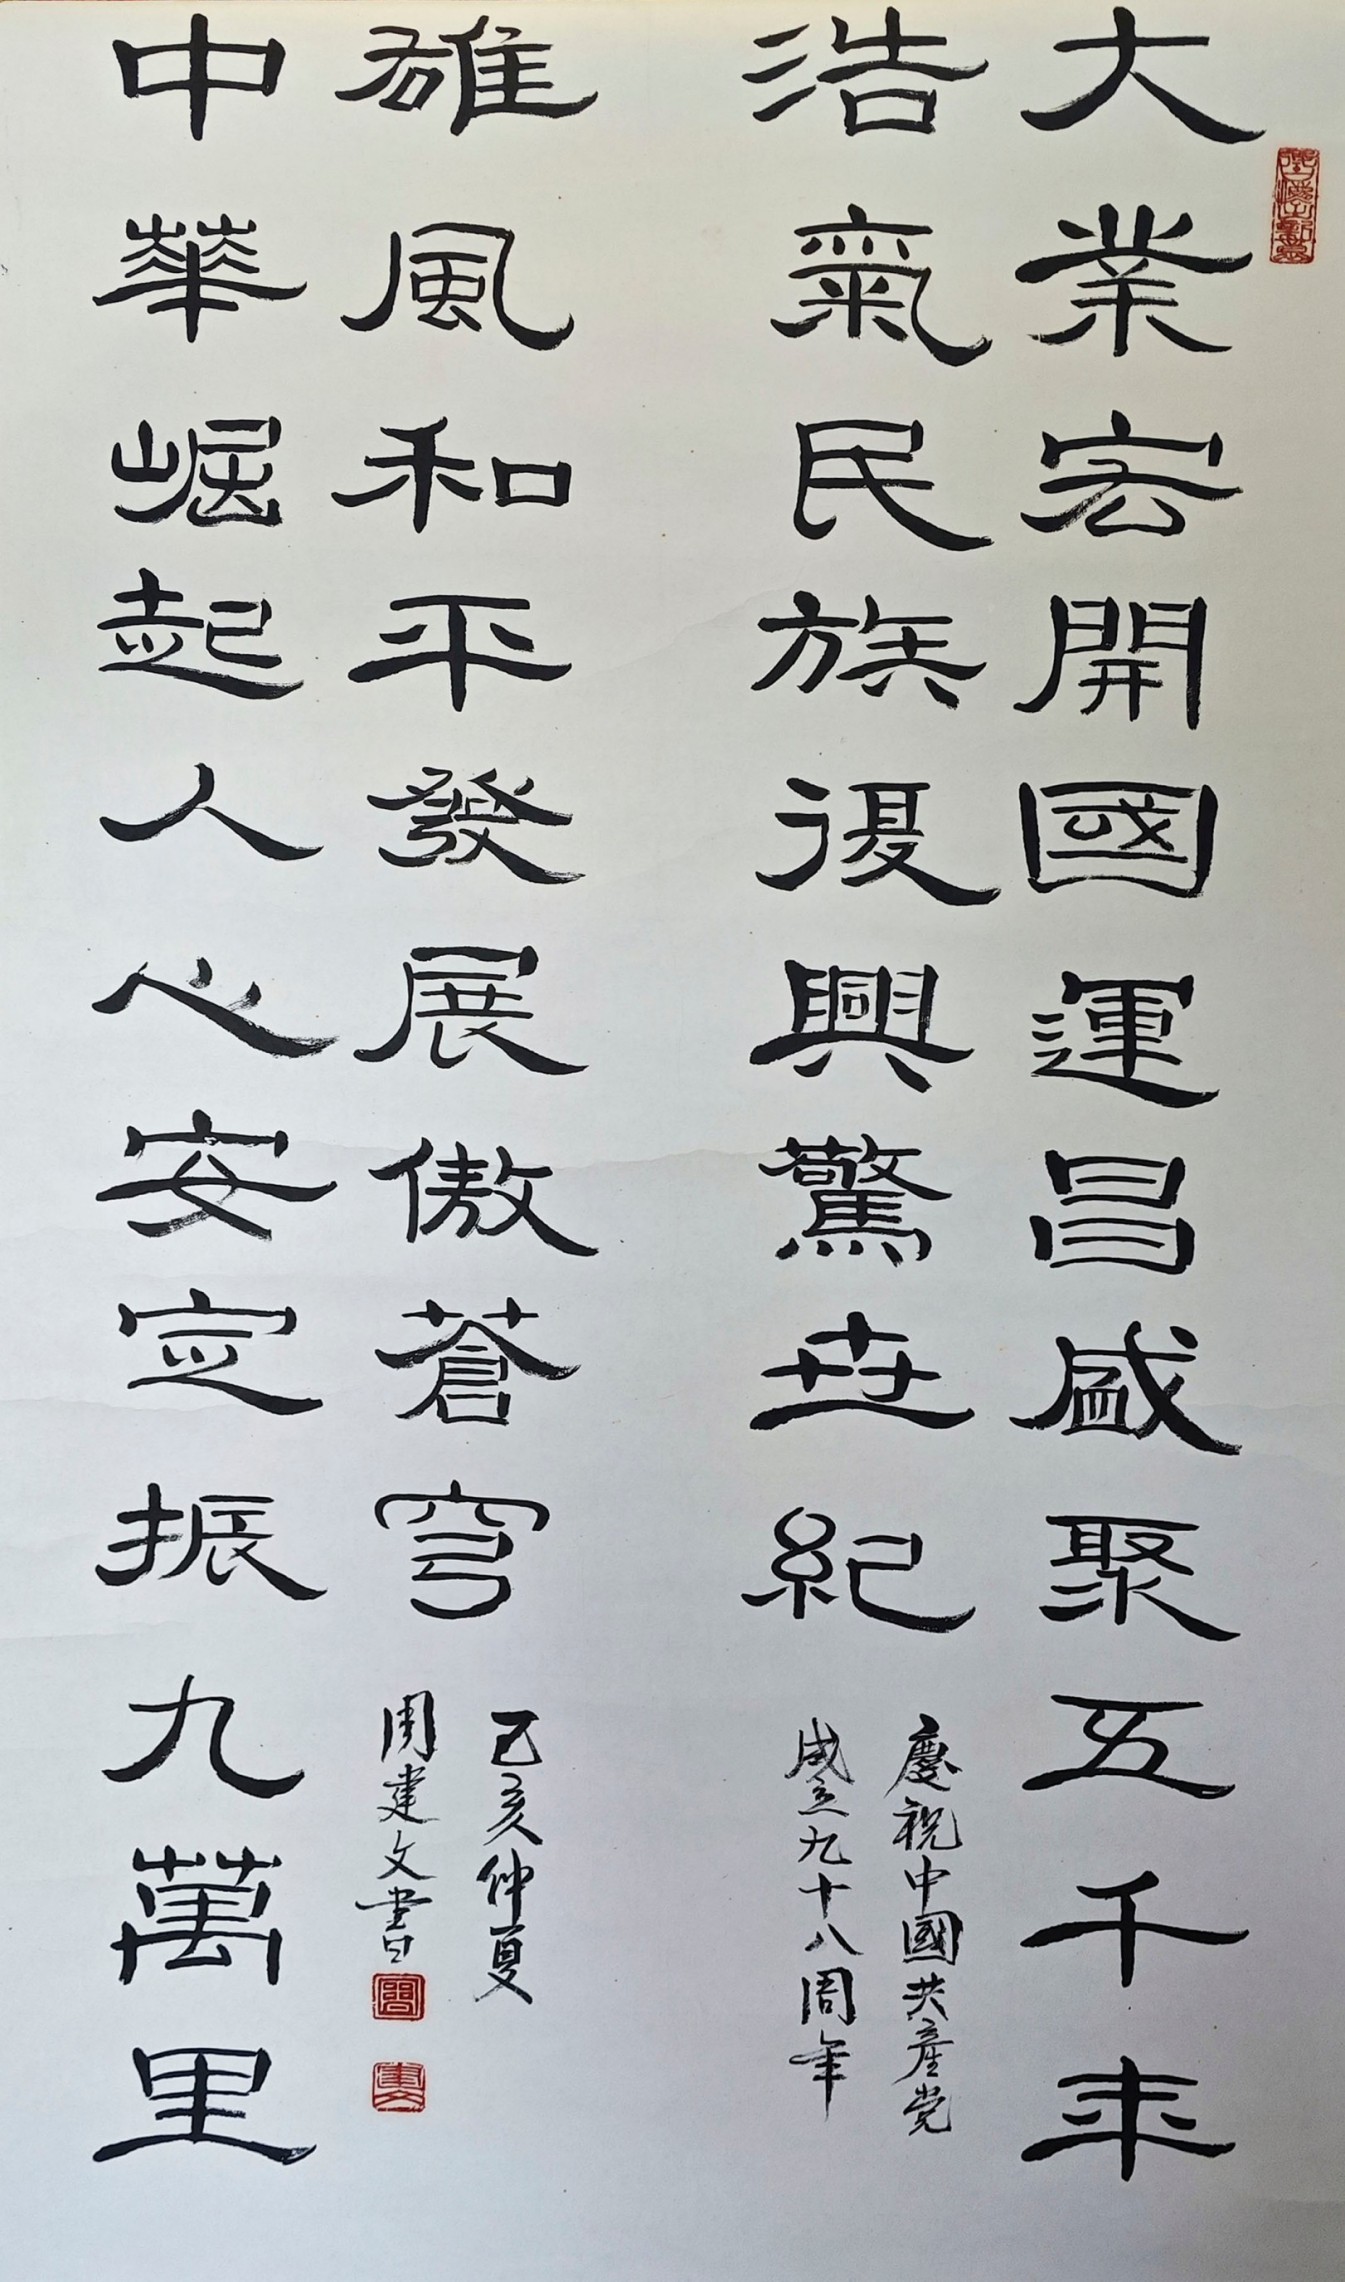 大業宏開國運昌盛聚五千年
浩氣民族復興驚世紀
慶祝中國共產党
成立九十八周年
中華崛起人心安定振九萬里
雄風和平發展傲蒼穹
己亥仲夏
周建文書